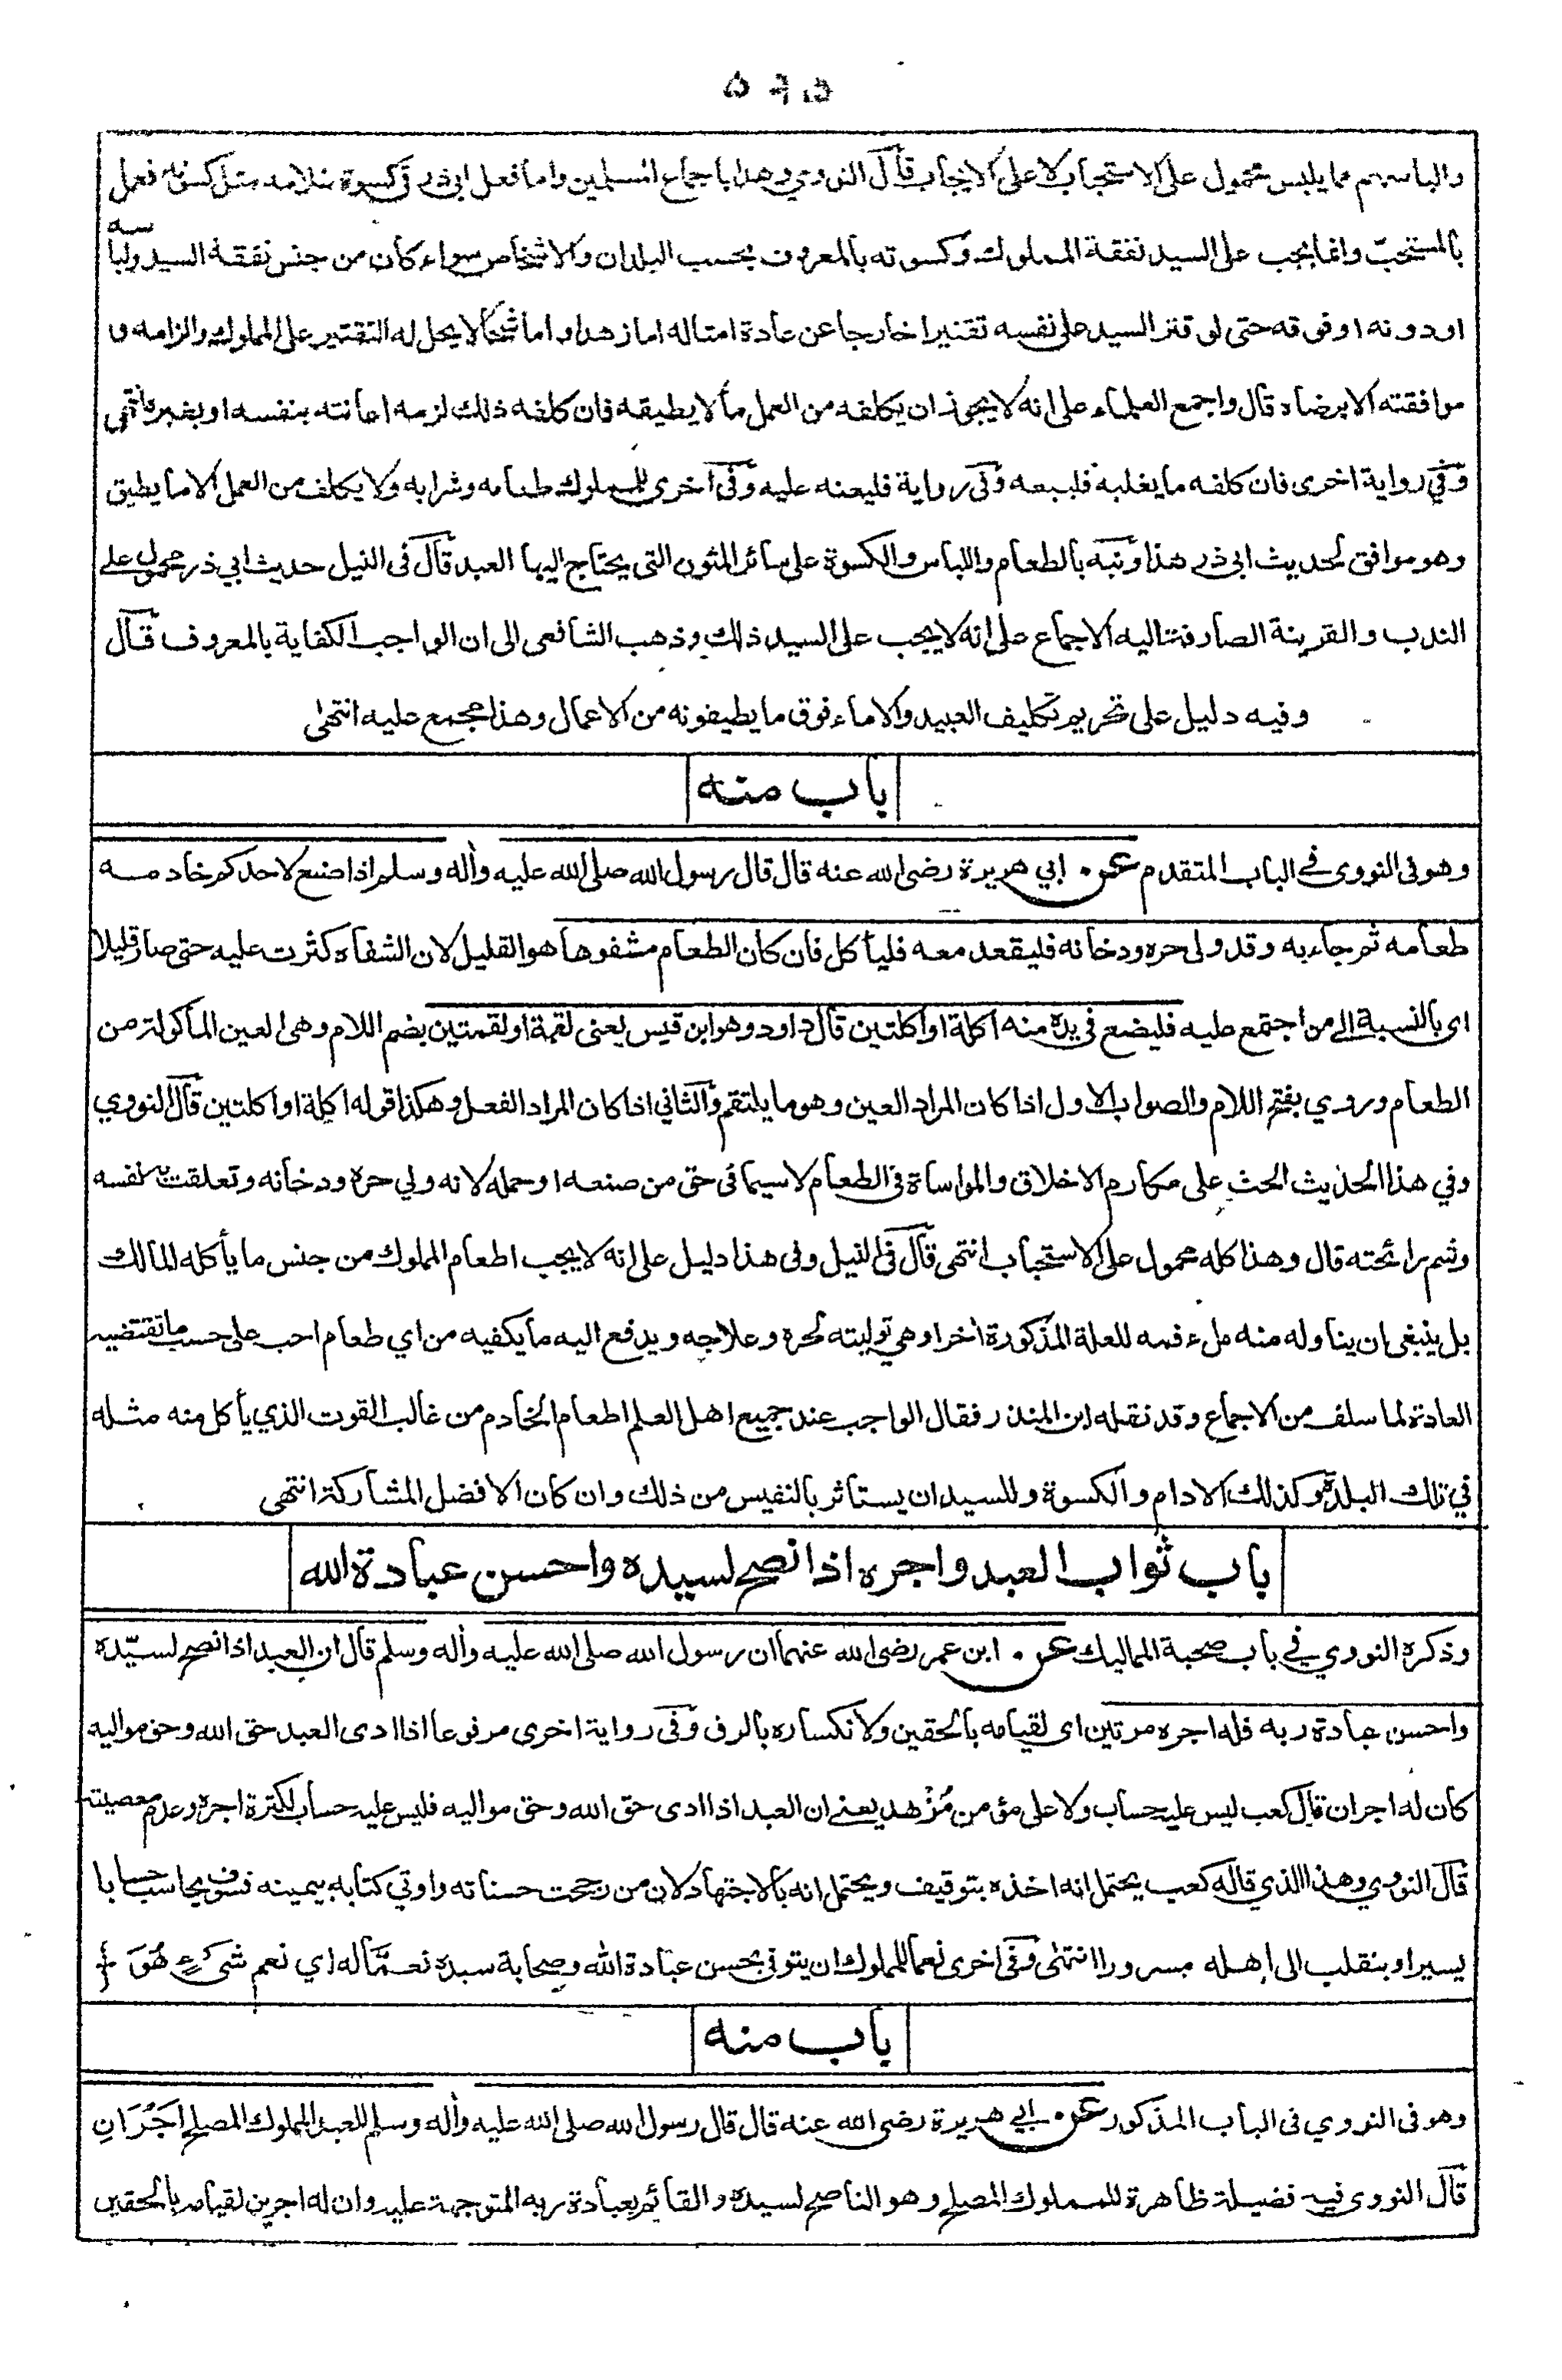 والباسهم مما يلبس محمول على الاستحباب لا على الايجاب قال النووي وهذا باجماع المسلمين واما فعل ابى ذر فى كسوة غلامه مثل كسوته فعمل
بالمستحبّ وانما يجب على السيد نفقة المملوك وكسوته بالمعروف بحسب البلدان والاشخاص سواء كان من جنس نفقة السيد ولباسه
او دونه او فوقه حتى لو قتر السيد على نفسه تقتيرا خارجا عن عادة امثاله اما زهدا واما شحا لا يحل له التقتير على المملوك والزامه
موافقته الا برضاه قال واجمع العلماء على انه لا يجوز ان يكلفه من العمل ما لا يطيقه فان كلفه ذلك لزمه اعانته بنفسه او بغيره انتهى
وفي رواية اخرى فان كلفه ما يغلبه فليبعه وفى رواية فليعنه عليه وفى اخرى للمملوك طعامه وشرابه ولا يكلف من العمل الا ما يطيق
وهو موافق لحديث ابى ذر هذا ونبه بالطعام واللباس والكسوة على سائر المئون التى يحتاج اليها العبد قال فى النيل حديث ابي ذر محمول على
الندب والقرينة الصارفة اليه الاجماع على انه لا يجب على السيد ذلك وذهب الشافعى الى ان الواجب الكفاية بالمعروف قال
وفيه دليل على تحريم تكليف العبيد والاماء فوق ما يطيقونه من الاعمال وهذا مجمع عليه انتهى
باب منه
وهو فى النووى في الباب المتقدم عن ابي هريرة رضى الله عنه قال قال رسول الله صلى الله عليه وأله وسلم اذا صنع لاحدكم خادمه
طعامه ثم جاء به وقد ولى حره ودخانه فليقعد معه فليأكل فان كان الطعام مشفوها هو القليل لان الشفاه كثرت عليه حتى صار قليلا
اى بالنسبة الى من اجتمع عليه فليضع في يده منه اكلة او اكلتين قال داود وهو ابن قيس يعنى لقمة او لقمتين بضم اللام وهى العين المأكولة من
الطعام وروي بفتح اللام والصواب الاول اذا كان المراد العين وهو ما يلتقم والثاني اذا كان المراد الفعل وهكذا قوله اكلة او اكلتين قال النووي
وفي هذا الحديث الحث على مكارم الاخلاق والمواساة فى الطعام لا سيما فى حق من صنعه او حمله لانه ولي حره ودخانه وتعلقت به نفسه
وشم رائحته قال وهذا كله محمول على الاستحباب انتهى قال فى النيل وفى هذا دليل على انه لا يجب اطعام المملوك من جنس ما يأكله المالك
بل ينبغى ان يناوله منه ملء فمه للعلة المذكورة اخرا وهي توليته لحره وعلاجه ويدفع اليه ما يكفيه من اي طعام احب على حسب ما تقتضيه
العادة لما سلف من الاجماع وقد نقله ابن المنذر فقال الواجب عند جميع اهل العلم اطعام الخادم من غالب القوت الذي يأكل منه مثله
في تلك البلدة وكذلك الادام والكسوة وللسيد ان يستاثر بالنفيس من ذلك وان كان الافضل المشاركة انتهى
باب ثواب العبد واجره اذا نصح لسيده واحسن عبادة الله
وذكره النووي في باب صحبة المماليك عن ابن عمر رضى الله عنهما ان رسول الله صلى الله عليه وأله وسلم قال ان العبد اذا نصح لسيّده
واحسن عبادة ربه فله اجره مرتين اى لقيامه بالحقين ولانكساره بالرق وفى رواية اخرى مرفوعا اذا ادى العبد حق الله وحق مواليه
كان له اجران قال كعب ليس عليه حساب ولا على مؤمن مُزْهد يعنے ان العبد اذا ادى حق الله وحق مواليه فليس عليه حساب لكثرة اجره وعدم معصيته
قال النووي وهذا الذي قاله كعب يحتمل انه اخذه بتوقيف ويحتمل انه بالاجتهاد لان من رجحت حسناته واوتي كتابه بيمينه فسوف يحاسب حسابا
يسيرا وينقلب الى اهله مسرورا انتهى وفى اخرى نعما للمملوك ان يتوفى بحسن عبادة الله وصحابة سيده نعمّا له اي نعم شىء هُوَ
باب منه
وهو فى النووي فى الباب المذكور عن ابي هريرة رضى الله عنه قال قال رسول الله صلى الله عليه وأله وسلم للعبد المملوك المصلح اَجْرَانِ
قال النووى فيه فضيلة ظاهرة للمملوك المصلح وهو الناصح لسيده والقائم بعبادة ربه المتوجهة عليه وان له اجرين لقيامه بالحقين